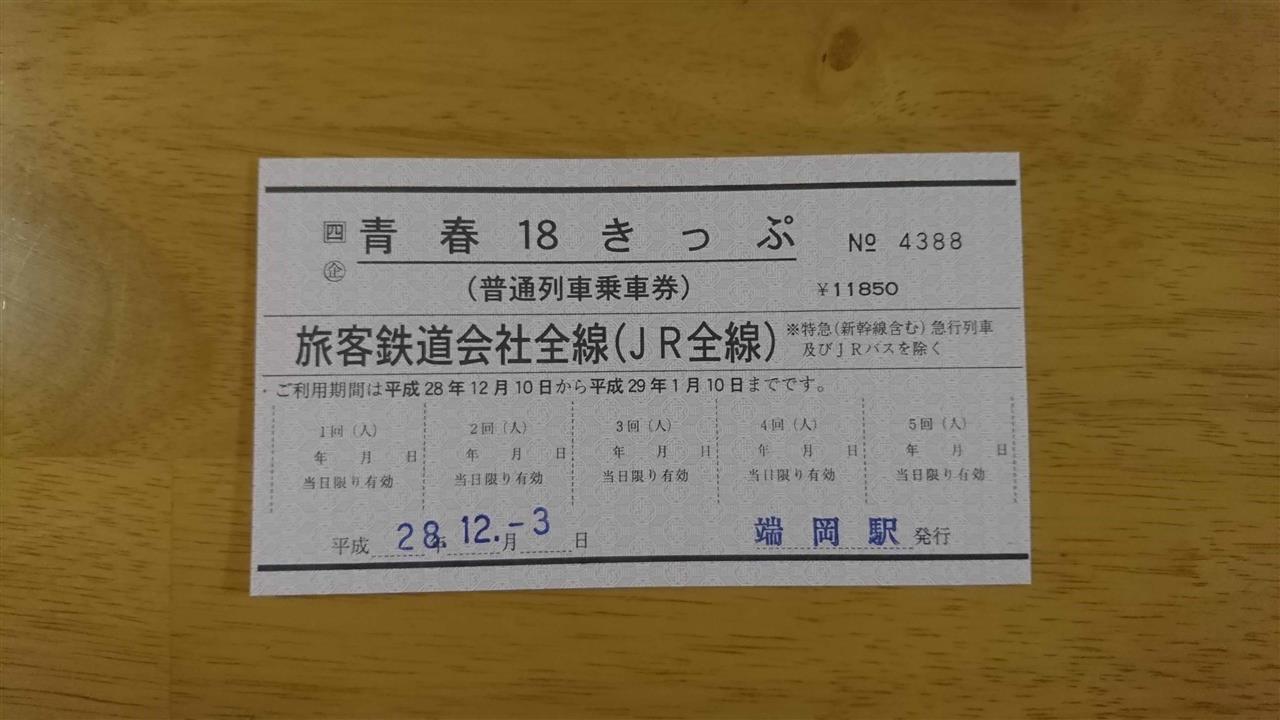 四 青春18きっぷ № 4388
企 (普通列車乗車券) ¥11850
旅客鉄道会社全線(JR全線) ※特急(新幹線含む)急行列車
及びJRバスを除く
・ご利用期間は平成28年12月10日から平成29年1月10日までです。
1回(人) 2回(人) 3回(人) 4回(人) 5回(人)
年 月 日 年 月 日 年 月 日 年 月 日 年 月 日
当日限り有効 当日限り有効 当日限り有効 当日限り有効 当日限り有効
平成 28年 12.月 -3日 端岡駅 発行